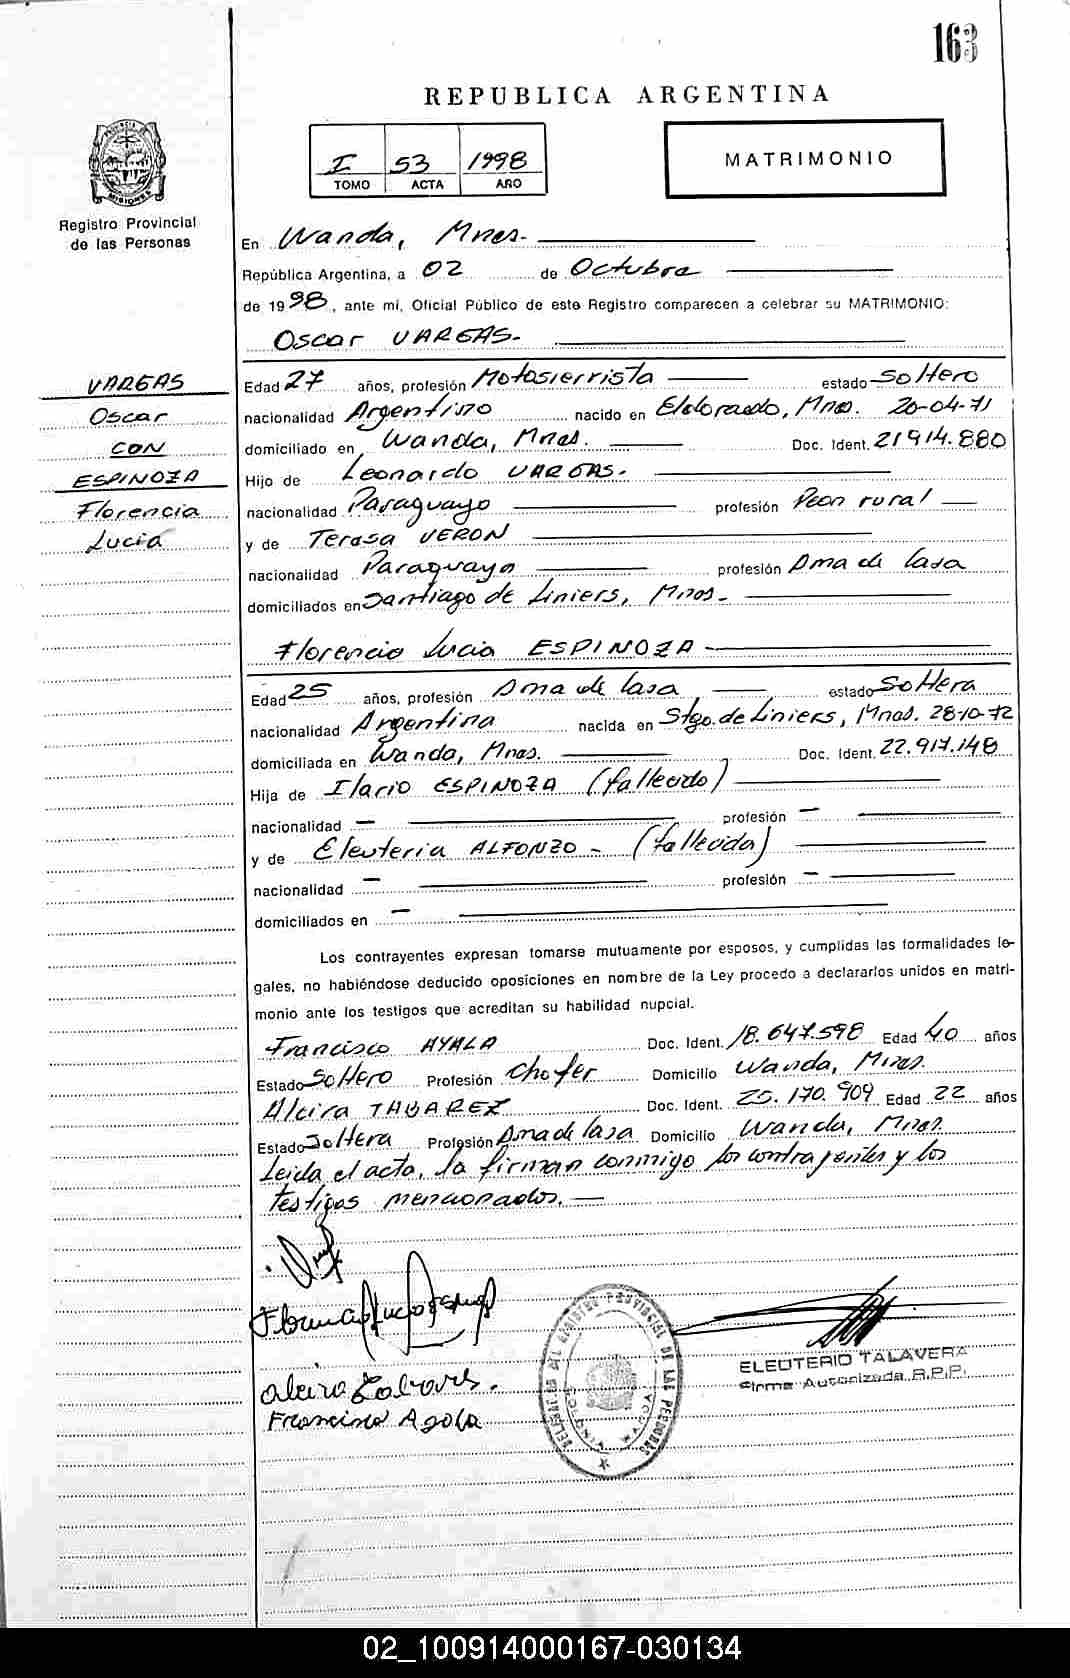 163
REPUBLICA ARGENTINA
I 53 1998
TOMO ACTA AÑO
MATRIMONIO
PROVINCIA DE MISIONES
Registro Provincial
de las Personas
En Wanda, Mnes.
República Argentina, a 02 de Octubre
de 1998, ante mi, Oficial Público de este Registro comparecen a celebrar su MATRIMONIO:
Oscar VARGAS.
VARGAS
Oscar
CON
ESPINOZA
Florencia
Lucia
Edad 27 años, profesión Motosierrista estado Soltero
nacionalidad Argentino nacido en Eldorado, Mnes. 20-04-71
domiciliado en Wanda, Mnes. Doc. Ident. 21914.880
Hijo de Leonardo VARGAS.
nacionalidad Paraguayo profesión Peon rural
y de Teresa VERON
nacionalidad Paraguaya profesión Ama de Casa
domiciliados en Santiago de Liniers, Mnes.
Florencia Lucia ESPINOZA
Edad 25 años, profesión Ama de Casa estado Soltera
nacionalidad Argentina nacida en Stgo. de Liniers, Mnes. 28-10-72
domiciliada en Wanda, Mnes. Doc. Ident. 22.917.148
Hija de Ilario ESPINOZA (fallecido)
nacionalidad — profesión —
y de Eleuteria ALFONZO - (fallecida)
nacionalidad — profesión —
domiciliados en —
Los contrayentes expresan tomarse mutuamente por esposos, y cumplidas las formalidades le-
gales, no habiéndose deducido oposiciones en nombre de la Ley procedo a declararlos unidos en matri-
monio ante los testigos que acreditan su habilidad nupcial.
Francisco AYALA Doc. Ident. 18.647.598 Edad 40 años
Estado Soltero Profesión Chofer Domicilio Wanda, Mnes.
Alcira TABAREZ Doc. Ident. 25.170.909 Edad 22 años
Estado Soltera Profesión Ama de Casa Domicilio Wanda, Mnes.
Leida el acta, la firman conmigo los contrayentes y los
testigos mencionados.
ELEUTERIO TALAVERA
Firma Autorizada R.P.P.
DELEGACION DEL REGISTRO PROVINCIAL DE LAS PERSONAS
COLONIA WANDA
Francisco Ayala
02_100914000167-030134